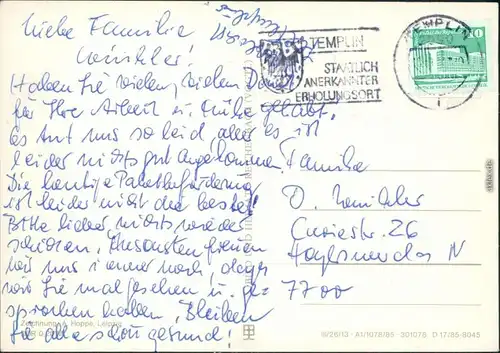 Liebe Familie
Winkler!
Haben Sie vielen, vielen Dank
für Ihre Arbeit u. Mühe gehabt,
es tut uns so leid, aber es ist
leider nichts gut angekommen.
Die heutige Paketbeförderung
ist leider nicht die beste!
Bitte lieber nichts wieder
schicken. Ansonsten freuen
wir uns immer noch, dass
wir Sie mal gesehen u. ge-
sprochen haben. Bleiben
Sie alle schön gesund!
TEMPLIN
STAATLICH
ANERKANNTER
ERHOLUNGSORT
TEMPLIN
10
Familie
D. Winkler
Curiestr. 26
Hoyerswerda N
7700
Zeichnung: Hoppe, Leipzig
III/26/13 · A1/1078/85 · 301078 · D 17/85-8045